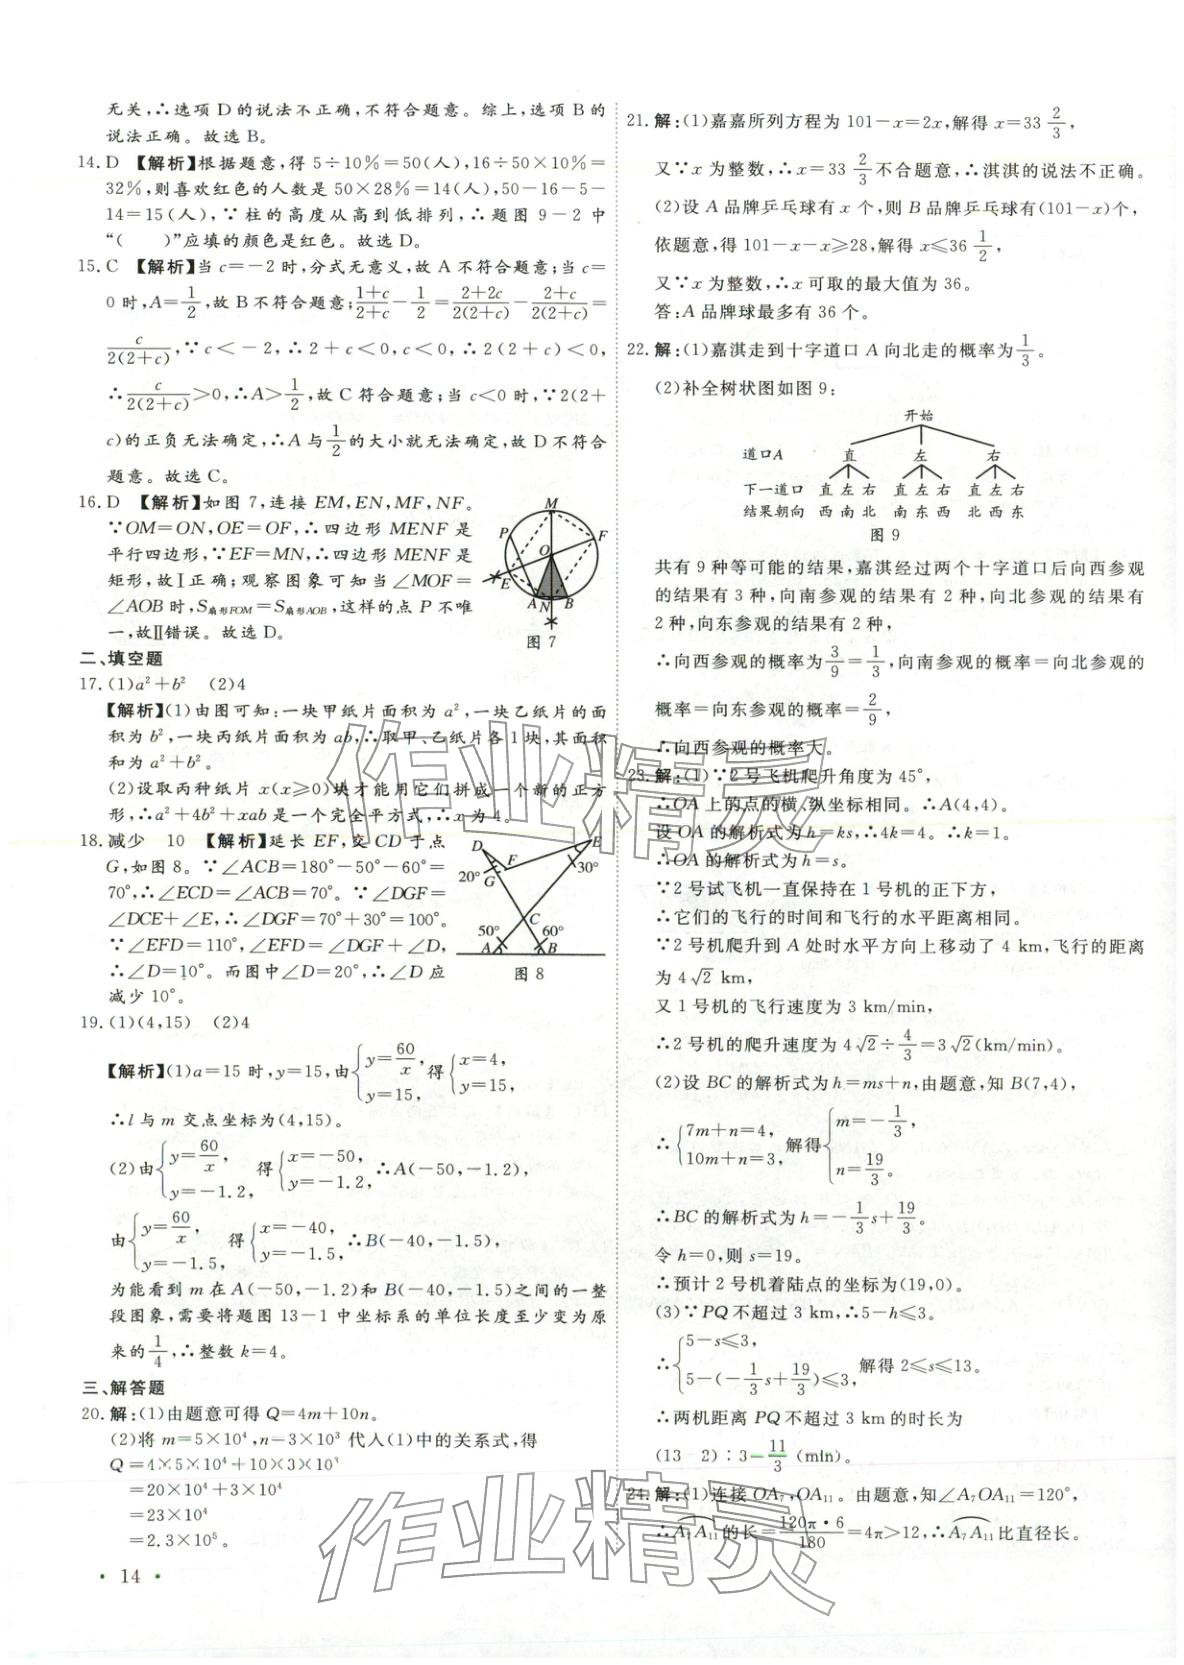 无关,∴选项 D 的说法不正确,不符合题意。综上,选项 B 的
说法正确。故选 B。
14. D 【解析】根据题意,得 5÷10%=50(人),16÷50×10%=
32%,则喜欢红色的人数是 50×28%=14(人),50-16-5-
14=15(人),∵柱的高度从高到低排列,∴题图 9-2 中
“(  )”应填的颜色是红色。故选 D。
15. C 【解析】当 c=-2 时,分式无意义,故 A 不符合题意;当 c=
0 时,A=1/2,故 B 不符合题意;(1+c)/(2+c)-1/2=(2+2c)/(2(2+c))-(2+c)/(2(2+c))=
c/(2(2+c)),∵c<-2,∴2+c<0,c<0,∴2(2+c)<0,
∴c/(2(2+c))>0,∴A>1/2,故 C 符合题意;当 c<0 时,∵2(2+
c)的正负无法确定,∴A 与 1/2 的大小就无法确定,故 D 不符合
题意。故选 C。
16. D 【解析】如图 7,连接 EM,EN,MF,NF。
∵OM=ON,OE=OF,∴四边形 MENF 是
平行四边形,∵EF=MN,∴四边形 MENF 是
矩形,故Ⅰ正确;观察图象可知当∠MOF=
∠AOB 时,S扇形FOM=S扇形AOB,这样的点 P 不唯
一,故Ⅱ错误。故选 D。
M
P
F
O
E
A N B
图 7
二、填空题
17. (1)a²+b² (2)4
【解析】(1)由图可知:一块甲纸片面积为 a²,一块乙纸片的面
积为 b²,一块丙纸片面积为 ab,∴取甲、乙纸片各 1 块,其面积
和为 a²+b²。
(2)设取丙种纸片 x(x≥0)块才能用它们拼成一个新的正方
形,∴a²+4b²+xab 是一个完全平方式,∴x 为 4。
18. 减少 10 【解析】延长 EF,交 CD 于点
G,如图 8。∵∠ACB=180°-50°-60°=
70°,∴∠ECD=∠ACB=70°。∵∠DGF=
∠DCE+∠E,∴∠DGF=70°+30°=100°。
∵∠EFD=110°,∠EFD=∠DGF+∠D,
∴∠D=10°。而图中∠D=20°,∴∠D 应
减少 10°。
D
E
F
20°
G
30°
C
50°
60°
A
B
图 8
19. (1)(4,15) (2)4
【解析】(1)a=15 时,y=15,由{y=60/x, y=15, 得{x=4, y=15,
∴l 与 m 交点坐标为(4,15)。
(2)由{y=60/x, y=-1.2, 得{x=-50, y=-1.2, ∴A(-50,-1.2),
由{y=60/x, y=-1.5, 得{x=-40, y=-1.5, ∴B(-40,-1.5),
为能看到 m 在 A(-50,-1.2)和 B(-40,-1.5)之间的一整
段图象,需要将题图 13-1 中坐标系的单位长度至少变为原
来的 1/4,∴整数 k=4。
三、解答题
20. 解:(1)由题意可得 Q=4m+10n。
(2)将 m=5×10⁴,n=3×10³ 代入(1)中的关系式,得
Q=4×5×10⁴+10×3×10³
=20×10⁴+3×10⁴
=23×10⁴
=2.3×10⁵。
• 14 •
21. 解:(1)嘉嘉所列方程为 101-x=2x,解得 x=33 2/3,
又∵x 为整数,∴x=33 2/3 不合题意,∴淇淇的说法不正确。
(2)设 A 品牌乒乓球有 x 个,则 B 品牌乒乓球有(101-x)个,
依题意,得 101-x-x≥28,解得 x≤36 1/2,
又∵x 为整数,∴x 可取的最大值为 36。
答:A 品牌球最多有 36 个。
22. 解:(1)嘉淇走到十字道口 A 向北走的概率为 1/3。
(2)补全树状图如图 9:
开始
道口A 直 左 右
下一道口 直 左 右 直 左 右 直 左 右
结果朝向 西 南 北 南 东 西 北 西 东
图 9
共有 9 种等可能的结果,嘉淇经过两个十字道口后向西参观
的结果有 3 种,向南参观的结果有 2 种,向北参观的结果有
2 种,向东参观的结果有 2 种,
∴向西参观的概率为 3/9=1/3,向南参观的概率=向北参观的
概率=向东参观的概率=2/9,
∴向西参观的概率大。
23. 解:(1)∵2 号飞机爬升角度为 45°,
∴OA 上的点的横、纵坐标相同。∴A(4,4)。
设 OA 的解析式为 h=ks,∴4k=4。∴k=1。
∴OA 的解析式为 h=s。
∵2 号试飞机一直保持在 1 号机的正下方,
∴它们的飞行的时间和飞行的水平距离相同。
∵2 号机爬升到 A 处时水平方向上移动了 4 km,飞行的距离
为 4√2 km,
又 1 号机的飞行速度为 3 km/min,
∴2 号机的爬升速度为 4√2÷4/3=3√2(km/min)。
(2)设 BC 的解析式为 h=ms+n,由题意,知 B(7,4),
∴{7m+n=4, 10m+n=3, 解得{m=-1/3, n=19/3。
∴BC 的解析式为 h=-1/3s+19/3。
令 h=0,则 s=19。
∴预计 2 号机着陆点的坐标为(19,0)。
(3)∵PQ 不超过 3 km,∴5-h≤3。
∴{5-s≤3, 5-(-1/3s+19/3)≤3, 解得 2≤s≤13。
∴两机距离 PQ 不超过 3 km 的时长为
(13-2)÷3=11/3(min)。
24. 解:(1)连接 OA₇,OA₁₁。由题意,知∠A₇OA₁₁=120°,
∴A₇A₁₁的长=120π·6/180=4π>12,∴A₇A₁₁比直径长。
作业精灵
作业精灵